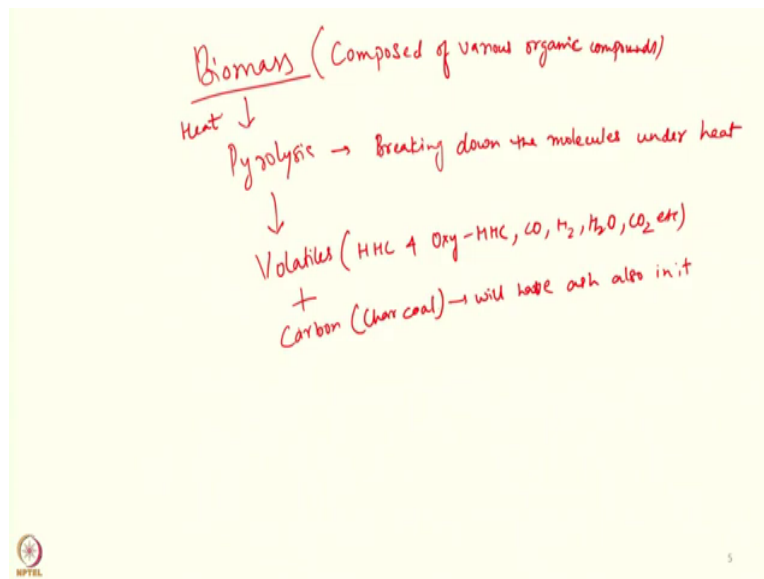 Biomass (Composed of various organic compounds)
Heat ↓
Pyrolysis → Breaking down the molecules under heat
↓
Volatiles (HHC & Oxy-HHC, CO, H2, H2O, CO2 etc)
+
Carbon (Charcoal) → will have ash also in it
NPTEL
5